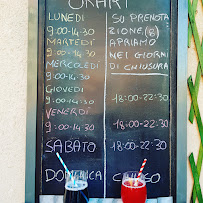 OKAHI
LUNEDÌ SU PRENOTA
9:00-14:30 ZIONE (8)
MARTEDÌ APRIAMO
9:00-14:30 NEI GIORNI
MERCOLEDÌ DI CHIUSURA
9:00-14:30
GIOVEDÌ
9:00-14:30 18:00-22:30
VENERDÌ
9:00-14:30 18:00-22:30
SABATO 18:00-22:30
DOMENICA CHIUSO